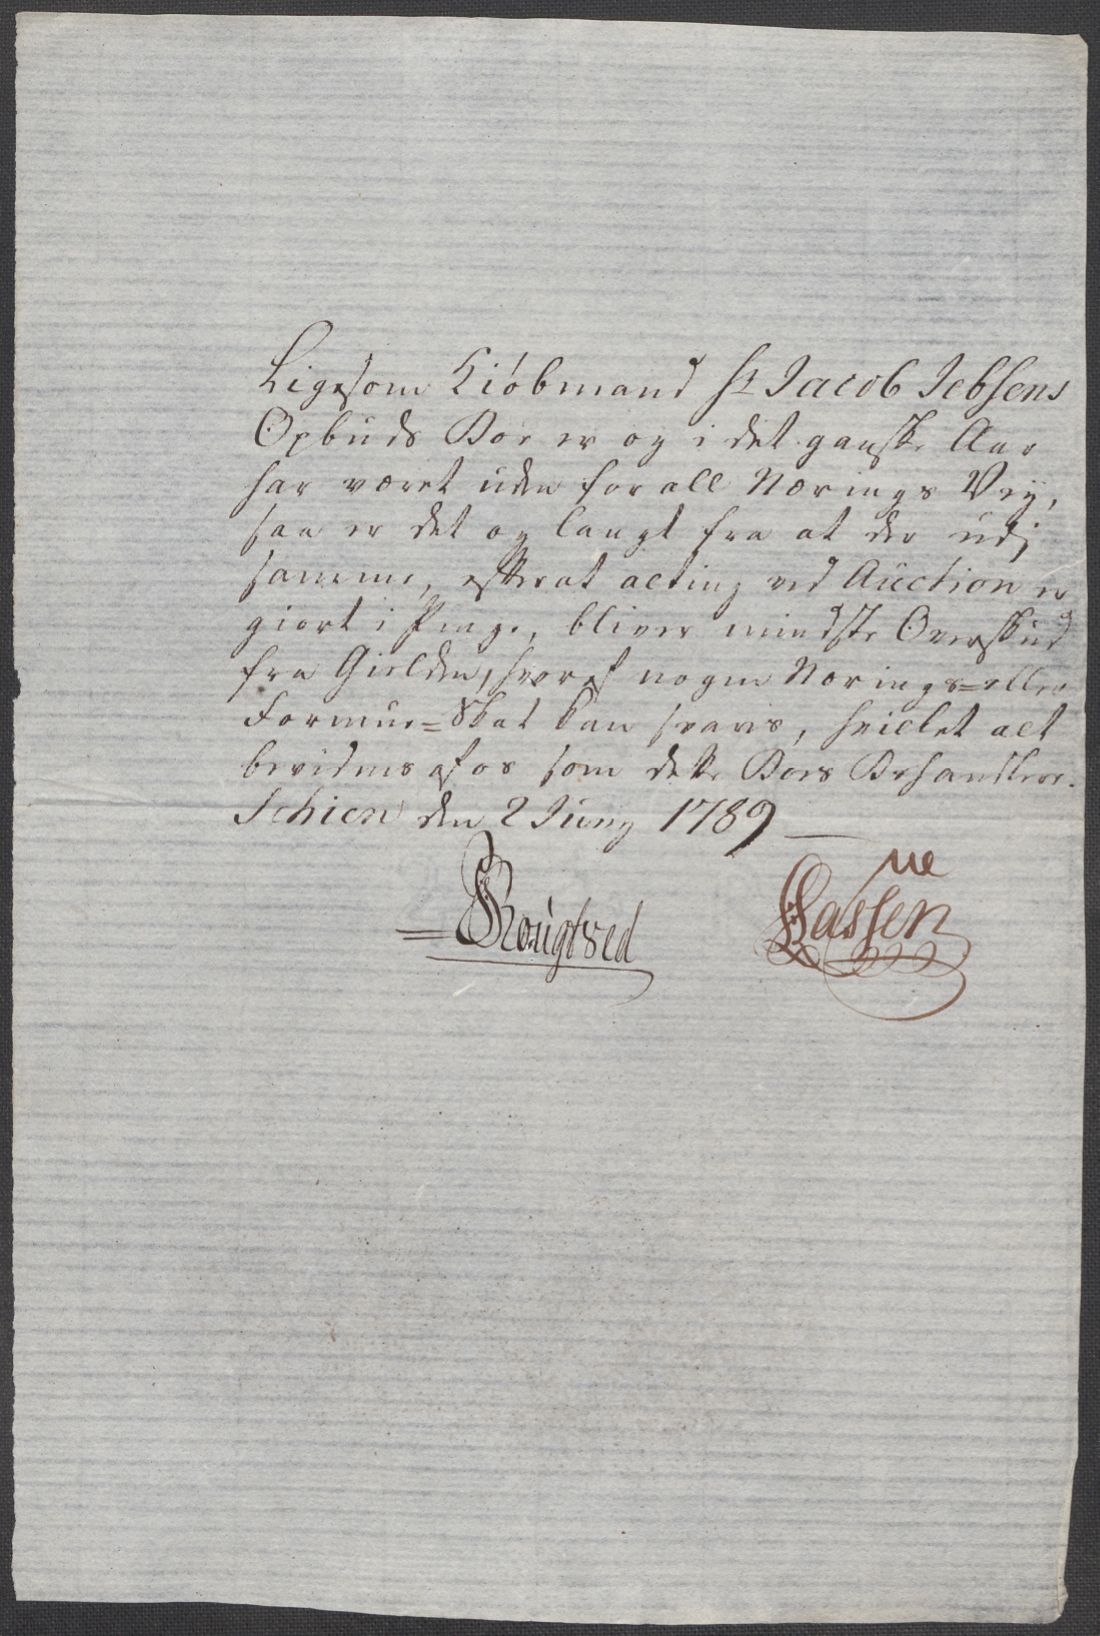 Ligesom Kiøbmand Sr Jacob Jebsens
Opbuds Boe er og i det ganske Aar
har været uden for all Nærings Vey,
saa er det og langt fra at der udj
samme, efterat alting ved Auction er
giort i Penge, bliver mindste Overskud
fra Gielden, hvoraf nogen Nærings= eller
Formue=Skat kan svares, hvilket alt
bevidnes af os som dette Boes Behandlere.
Schien den 2 Juny 1789